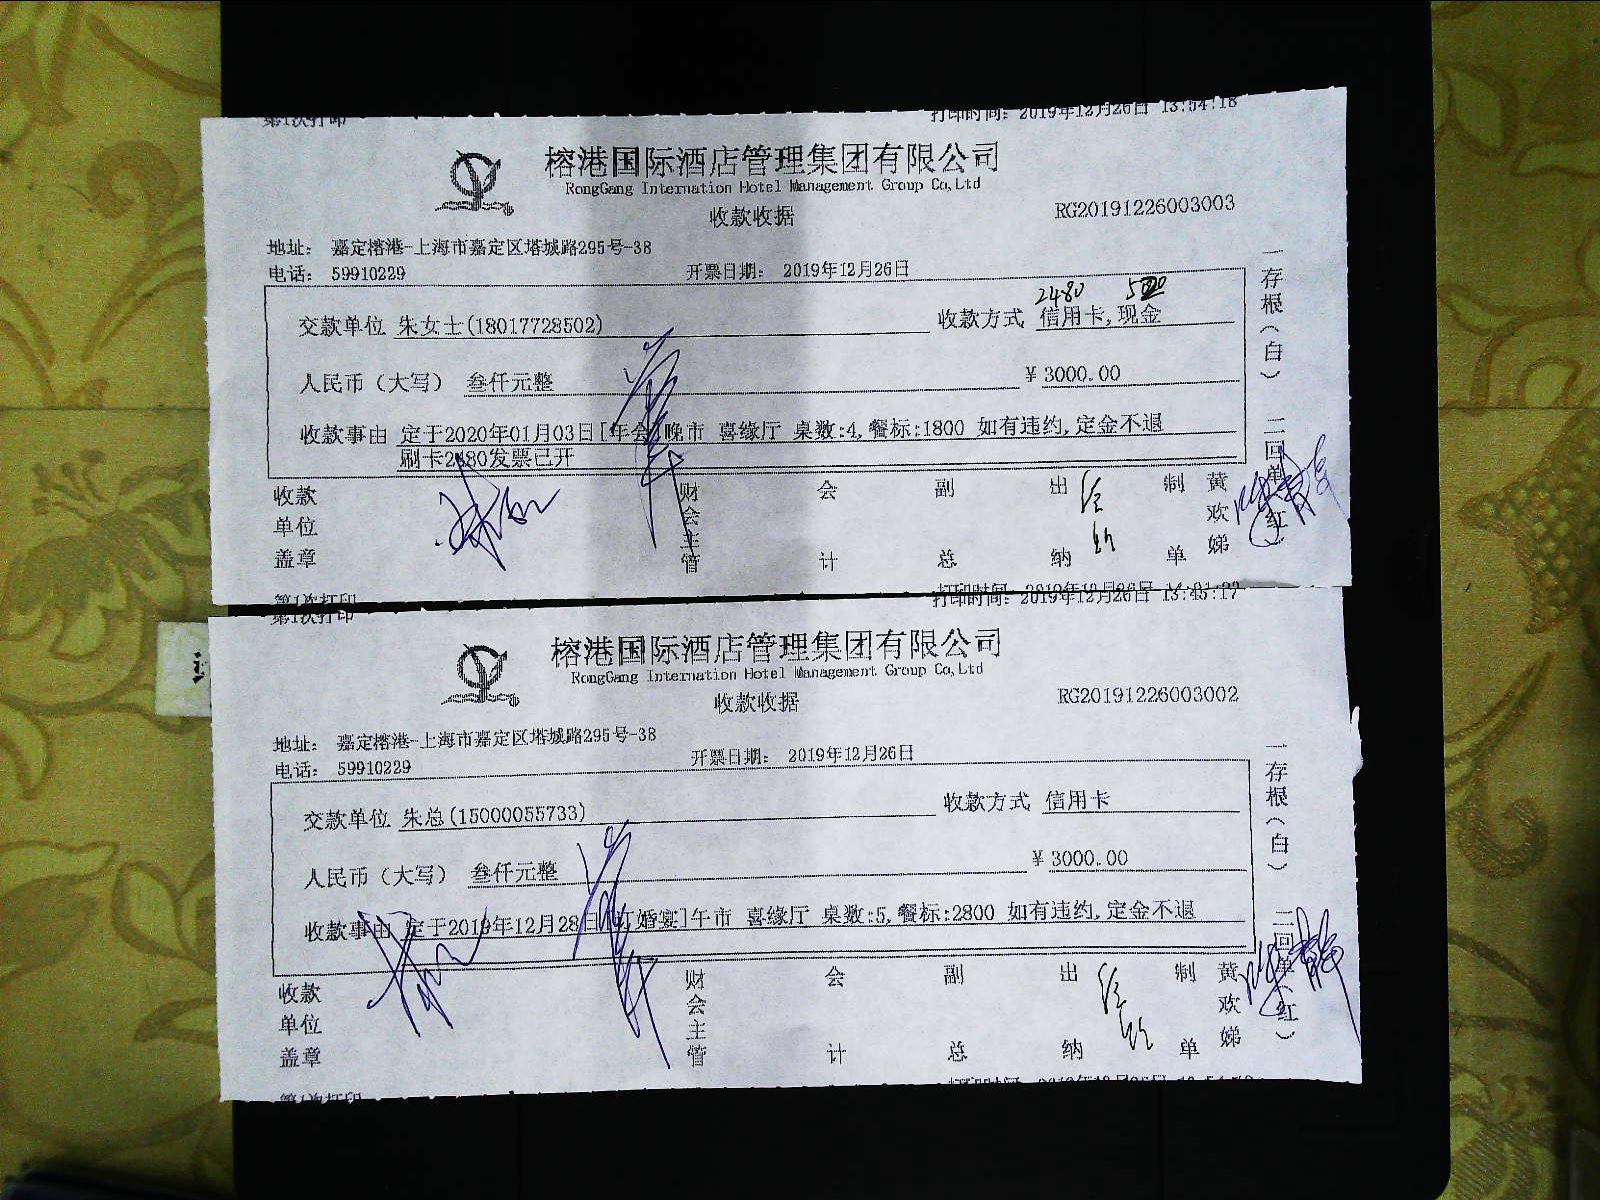 第1次打印 打印时间: 2019年12月26日 13:54:18
榕港国际酒店管理集团有限公司
RongGang Internation Hotel Management Group Co,Ltd
收款收据 RG20191226003003
地址: 嘉定榕港-上海市嘉定区塔城路295号-38
电话: 59910229 开票日期: 2019年12月26日
2480 520
交款单位 朱女士(18017728502) 收款方式 信用卡,现金
人民币(大写) 叁仟元整 ¥3000.00
收款事由 定于2020年01月03日[年会]晚市 喜缘厅 桌数:4,餐标:1800 如有违约,定金不退
刷卡2480发票已开
收款单位盖章 财会主管 会计 副总 出纳 制单 黄欢娣
一存根(白) 二回单(红)
第1次打印 打印时间: 2019年12月26日 13:45:17
榕港国际酒店管理集团有限公司
RongGang Internation Hotel Management Group Co,Ltd
收款收据 RG20191226003002
地址: 嘉定榕港-上海市嘉定区塔城路295号-38
电话: 59910229 开票日期: 2019年12月26日
交款单位 朱总(15000055733) 收款方式 信用卡
人民币(大写) 叁仟元整 ¥3000.00
收款事由 定于2019年12月28日[订婚宴]午市 喜缘厅 桌数:5,餐标:2800 如有违约,定金不退
收款单位盖章 财会主管 会计 副总 出纳 制单 黄欢娣
一存根(白) 二回单(红)
第1次打印